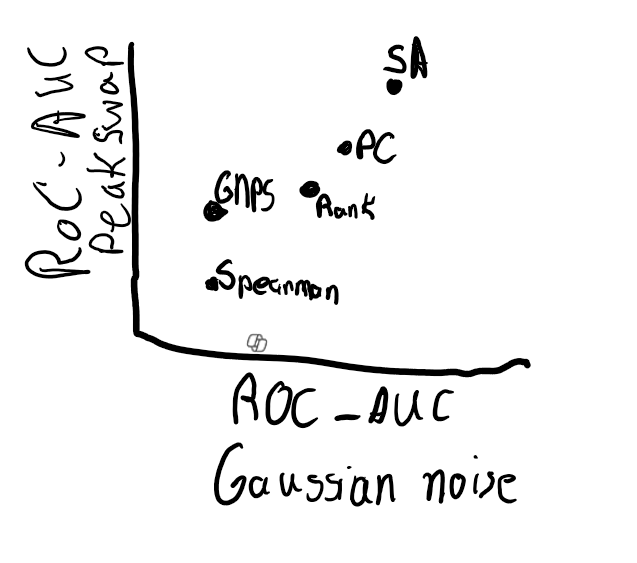 RoC-AUC
Peakswap
SA
PC
GNPS
Rank
Spearman
ROC-AUC
Gaussian noise